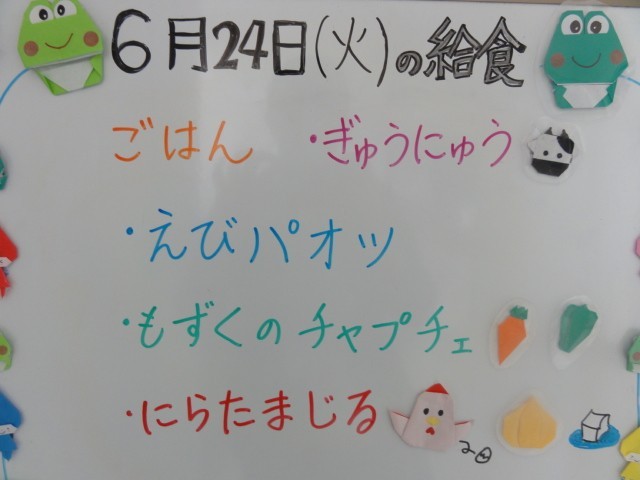 6月24日(火)の給食
ごはん ・ぎゅうにゅう
・えびパオツ
・もずくのチャプチェ
・にらたまじる